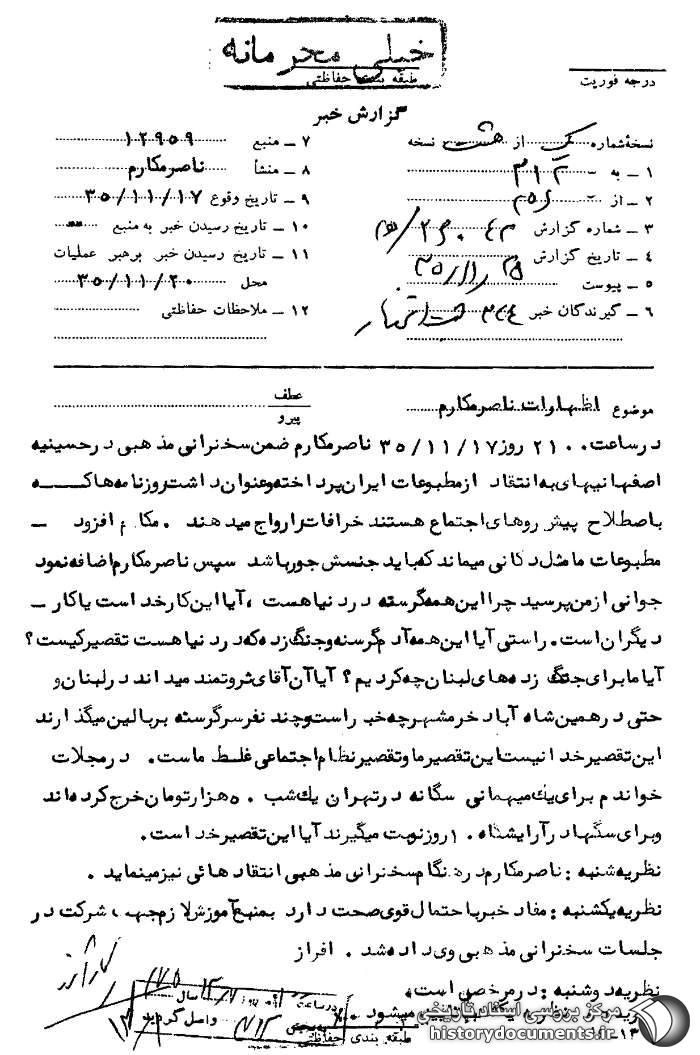 خیلی محرمانه
طبقه بندی حفاظتی
درجه فوریت
گزارش خبر
نسخهٔ شماره یک از هشت نسخه
۱ ـ به ۳۱۲
۲ ـ از
۳ ـ شماره گزارش
۴ ـ تاریخ گزارش
۵ ـ پیوست
۶ ـ گیرندگان خبر
۷ ـ منبع ۱۲۹۵۹
۸ ـ منشأ ناصرمکارم
۹ ـ تاریخ وقوع ۳۵/۱۱/۱۷
۱۰ ـ تاریخ رسیدن خبر به منبع
۱۱ ـ تاریخ رسیدن خبر برهبر عملیات
محل ۳۵/۱۱/۲۰
۱۲ ـ ملاحظات حفاظتی
موضوع اظهارات ناصرمکارم
عطف
پیرو
درساعت ۲۱۰۰ روز ۳۵/۱۱/۱۷ ناصرمکارم ضمن سخنرانی مذهبی درحسینیه
اصفهانیهای به انتقاد ازمطبوعات ایران پرداخته وعنوان داشت روزنامه هاکه
باصطلاح پیشروهای اجتماع هستند خرافات رارواج میدهند . مکارم افزود ـ
مطبوعات مامثل دکانی میماند که باید جنسش جورباشد سپس ناصرمکارم اضافه نمود
جوانی ازمن پرسید چرا این همه گرسنه در دنیاهست ، آیا این کارخداست یاکار ـ
دیگران است. راستی آیا این همه آدم گرسنه وجنگ زده که در دنیا هست تقصیرکیست؟
آیا مابرای جنگ زده های لبنان چه کردیم ؟ آیا آن آقای ثروتمند میداند درلبنان و
حتی درهمین شاه آباد خرمشهرچه خبراست وچند نفرسرگرسنه بربالین میگذارند
این تقصیر خدا نیست این تقصیرما وتقصیرنظام اجتماعی غلط ماست. درمجلات
خواندم برای یك میهمانی سگانه درتهران یك شب ۵۰ هزارتومان خرج کرده اند
وبرای سگها درآرایشگاه ۱۰ روزنوبت میگیرند آیا این تقصیرخداست.
نظریه شنبه : ناصرمکارم در هنگام سخنرانی مذهبی انتقادهائی نیزمینماید .
نظریه یکشنبه : مفاد خبر با احتمال قوی صحت دارد بمنبع آموزش لازم جهت شرکت در
جلسات سخنرانی مذهبی وی داده شد . افراز
نظریه دوشنبه : درمرخصی است.
واصل گردید
طبقه بندی حفاظتی
مرکز بررسی اسناد تاریخی
historydocuments.ir